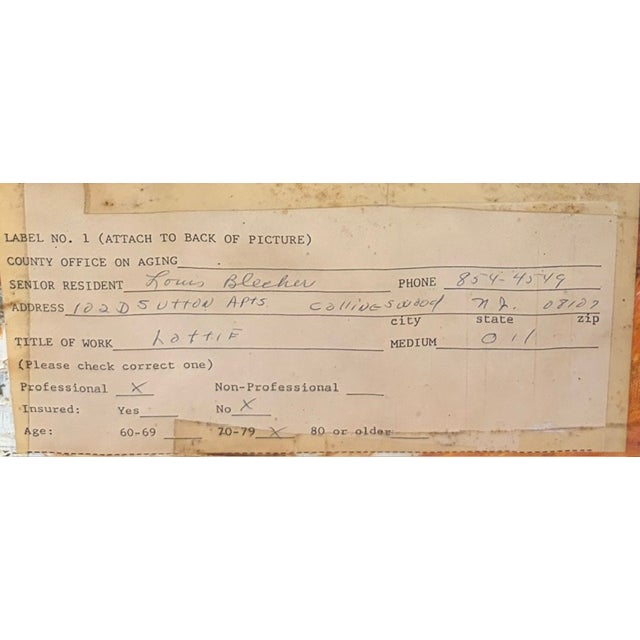 LABEL NO. 1 (ATTACH TO BACK OF PICTURE)
COUNTY OFFICE ON AGING
SENIOR RESIDENT Louis Blecher PHONE 854-4549
ADDRESS 102 D SUTTON APTS. COllINGSWOOD N.J. 08107
city state zip
TITLE OF WORK LOTTIE MEDIUM OIl
(Please check correct one)
Professional X Non-Professional
Insured: Yes No X
Age: 60-69 70-79 X 80 or older